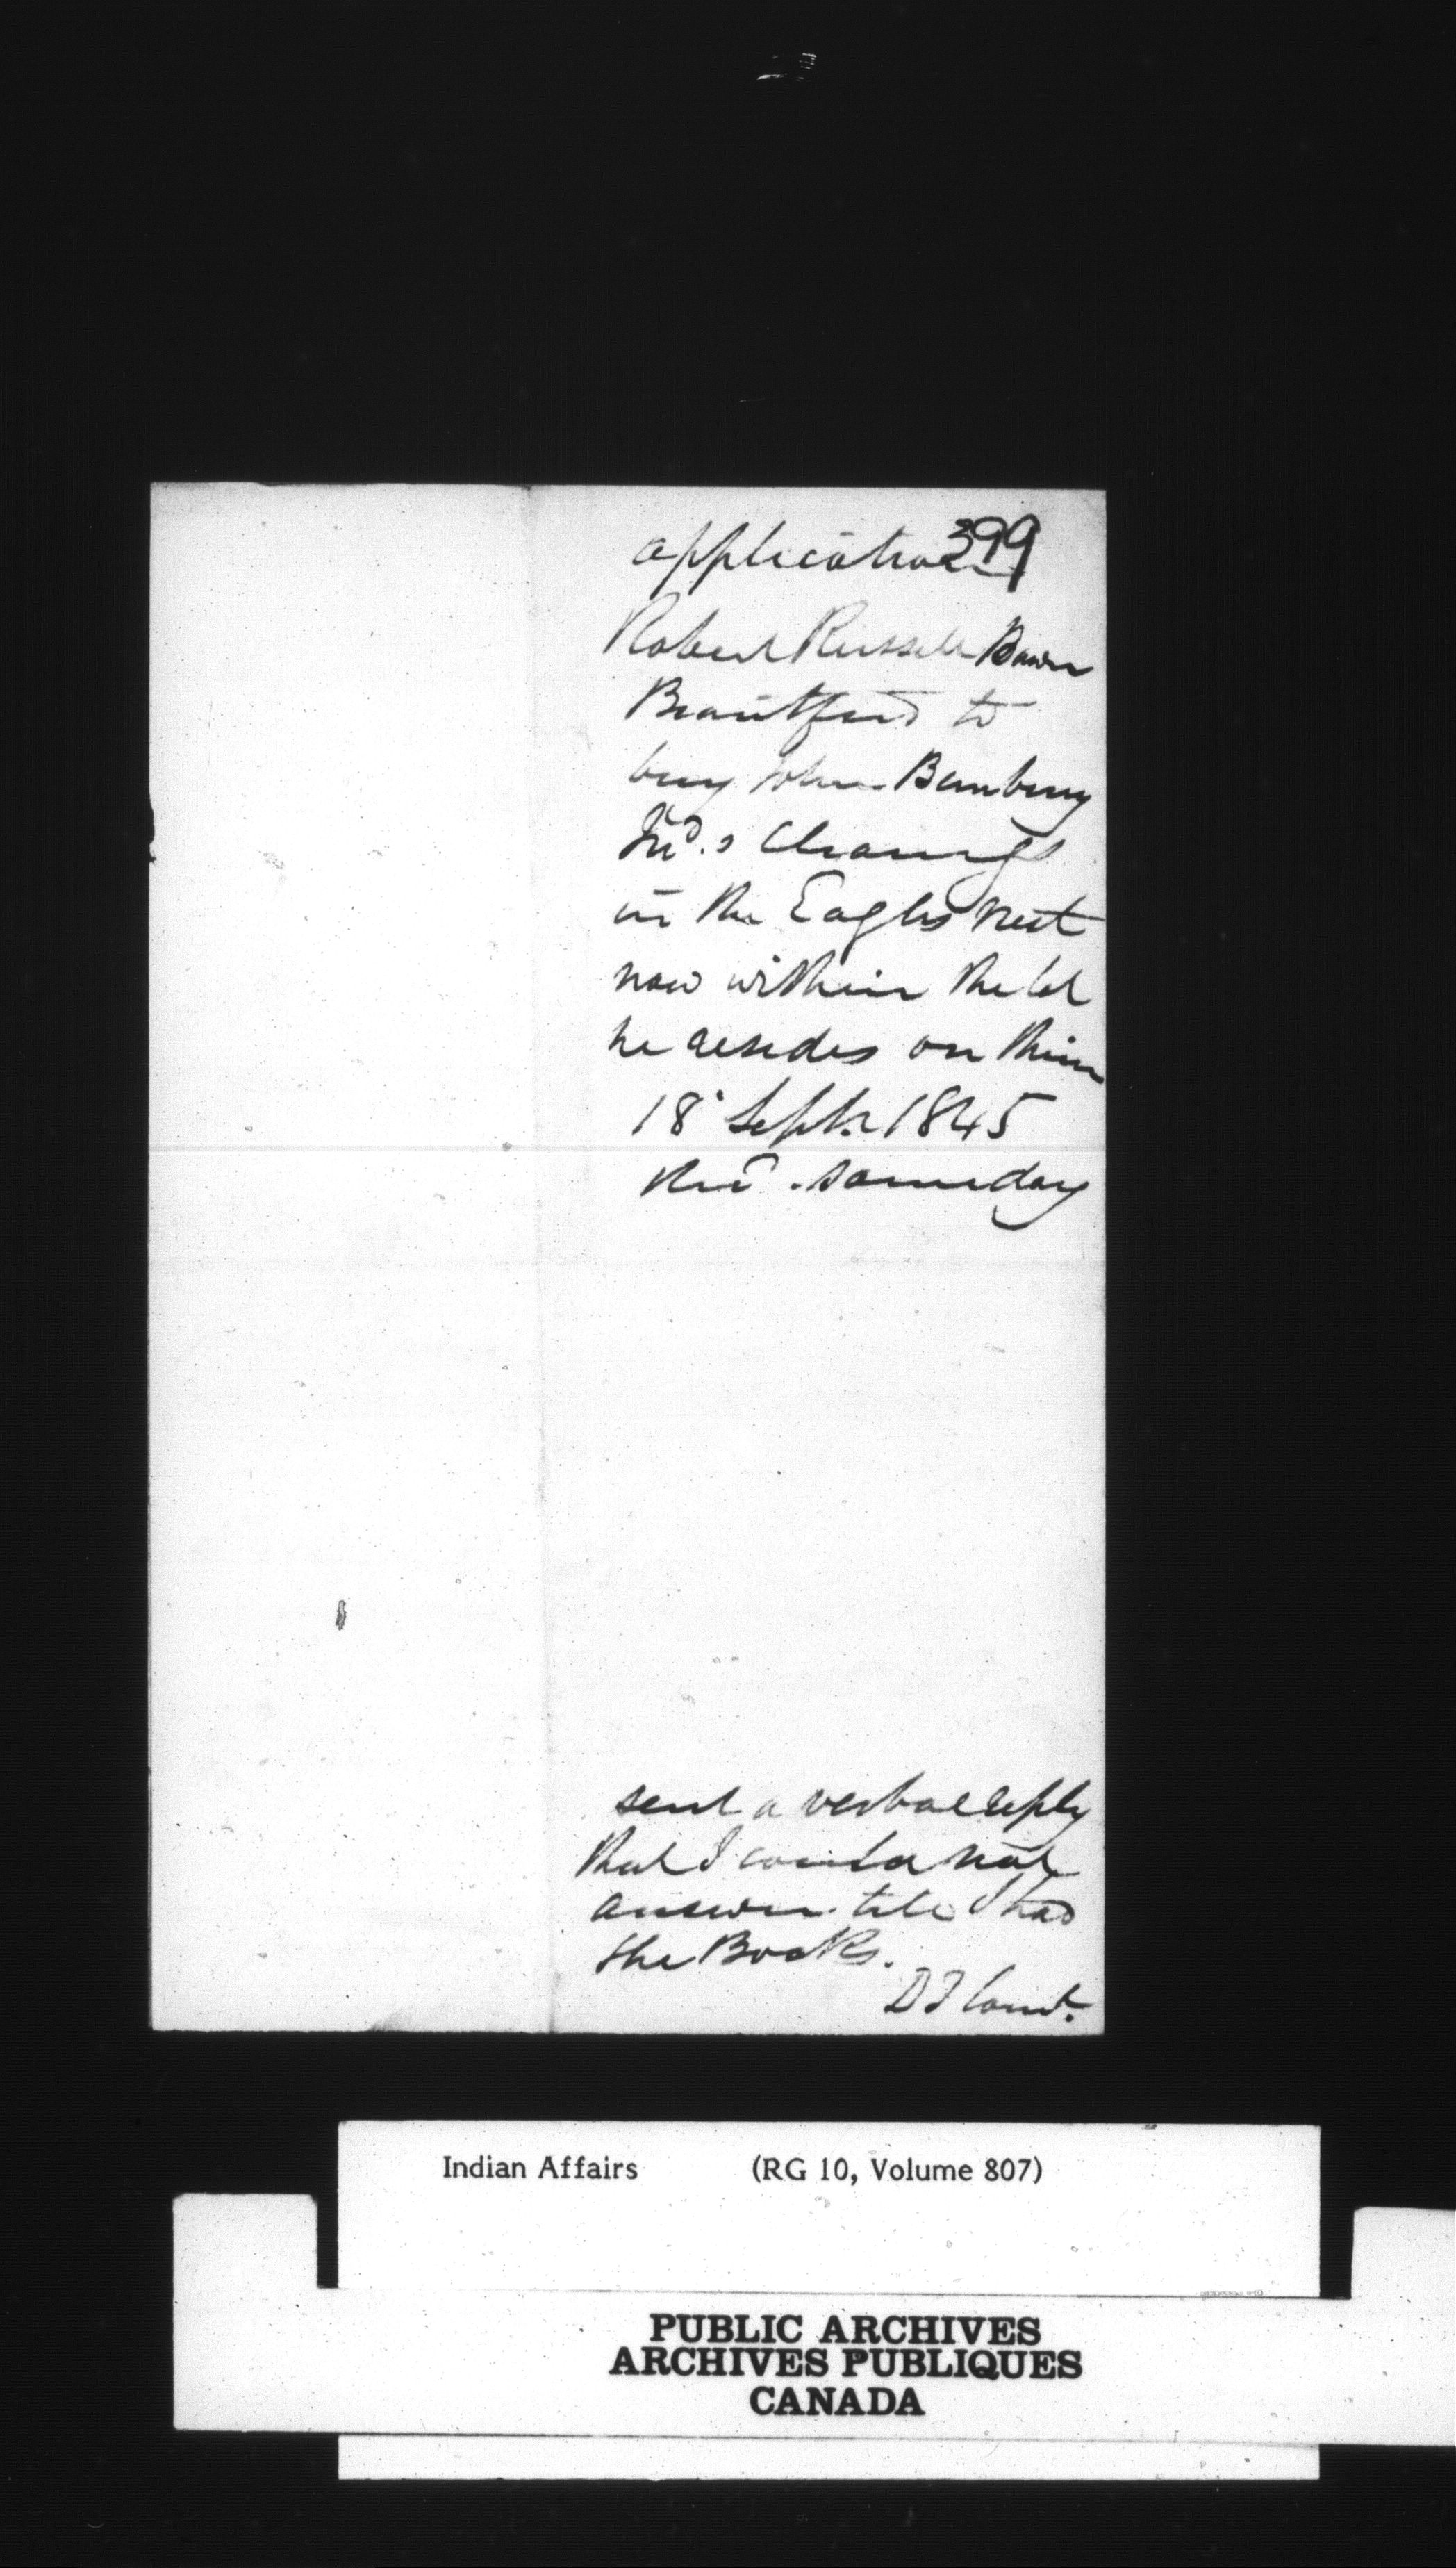 399
application
Robert Russell
Brantford to
buy John Bunbury
Ind.s Clearings
in the Eagles Nest
now within the
he resides on them
18 Sept. 1845
Recd. same day
sent a verbal reply
that I could not
answer till I had
the Books.
D T
Indian Affairs (RG 10, Volume 807)
PUBLIC ARCHIVES
ARCHIVES PUBLIQUES
CANADA